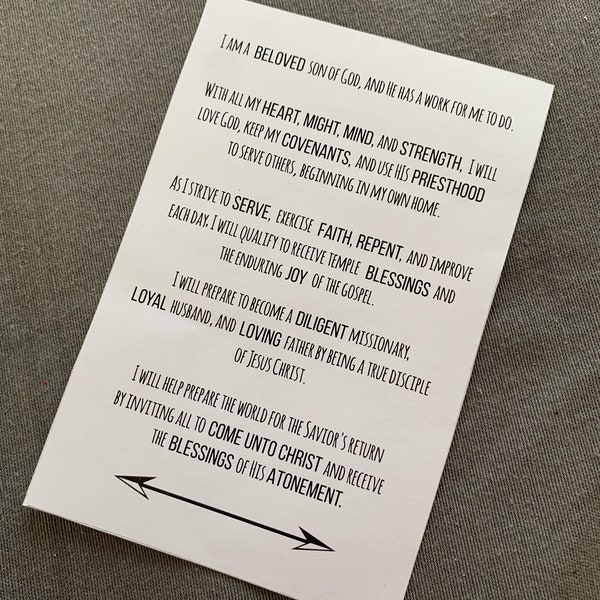 I AM A BELOVED SON OF GOD, AND HE HAS A WORK FOR ME TO DO.
WITH ALL MY HEART, MIGHT, MIND, AND STRENGTH, I WILL
LOVE GOD, KEEP MY COVENANTS, AND USE HIS PRIESTHOOD
TO SERVE OTHERS, BEGINNING IN MY OWN HOME.
AS I STRIVE TO SERVE, EXERCISE FAITH, REPENT, AND IMPROVE
EACH DAY, I WILL QUALIFY TO RECEIVE TEMPLE BLESSINGS AND
THE ENDURING JOY OF THE GOSPEL.
I WILL PREPARE TO BECOME A DILIGENT MISSIONARY,
LOYAL HUSBAND, AND LOVING FATHER BY BEING A TRUE DISCIPLE
OF JESUS CHRIST.
I WILL HELP PREPARE THE WORLD FOR THE SAVIOR'S RETURN
BY INVITING ALL TO COME UNTO CHRIST AND RECEIVE
THE BLESSINGS OF HIS ATONEMENT.